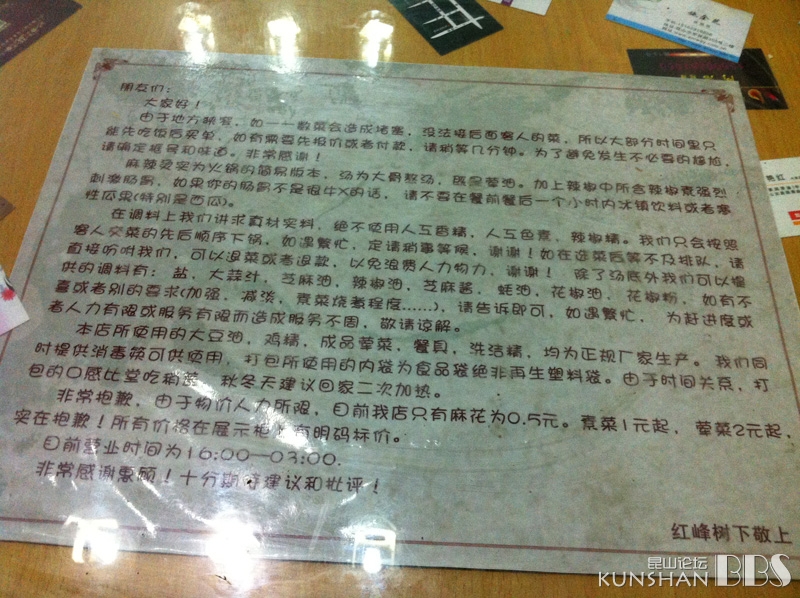 朋友们：
大家好！
由于地方狭窄，如一一数菜会造成堵塞，没法接后面客人的菜，所以大部分时间里只
能先吃饭后买单，如有需要先报价或者付款，请稍等几分钟。为了避免发生不必要的尴尬，
请确定桌号和味道。非常感谢！
麻辣烫实为火锅的简易版本，汤为大骨熬汤，既是荤油。加上辣椒中所含辣椒素强烈
刺激肠胃，如果你的肠胃不是很牛X的话，请不要在餐前餐后一个小时内冰镇饮料或者寒
性瓜果(特别是西瓜)。
在调料上我们讲求真材实料，绝不使用人工香精，人工色素，辣椒精。我们只会按照
客人交菜的先后顺序下锅，如遇繁忙，定请稍事等候，谢谢！如在选菜后等不及排队，请
直接吩咐我们，可以退菜或者退款，以免浪费人力物力，谢谢！ 除了汤底外我们可以提
供的调料有：盐，大蒜汁，芝麻油，辣椒油，芝麻酱，蚝油，花椒油，花椒粉，如有不
喜或者别的要求(加强，减淡，素菜烧煮程度……)，请告诉即可，如遇繁忙，为赶进度或
者人力有限或服务有限而造成服务不周，敬请谅解。
本店所使用的大豆油，鸡精，成品荤菜，餐具，洗洁精，均为正规厂家生产。我们同
时提供消毒筷可供使用，打包所使用的内袋为食品袋绝非再生塑料袋。由于时间关系，打
包的口感比堂吃稍差，秋冬天建议回家二次加热。
非常抱歉，由于物价人力所限，目前我店只有麻花为0.5元。素菜1元起，荤菜2元起，
实在抱歉！所有价格在展示柜上有明码标价。
目前营业时间为16:00—03:00.
非常感谢惠顾！十分期待建议和批评！
红峰树下敬上
昆山论坛
KUNSHAN BBS